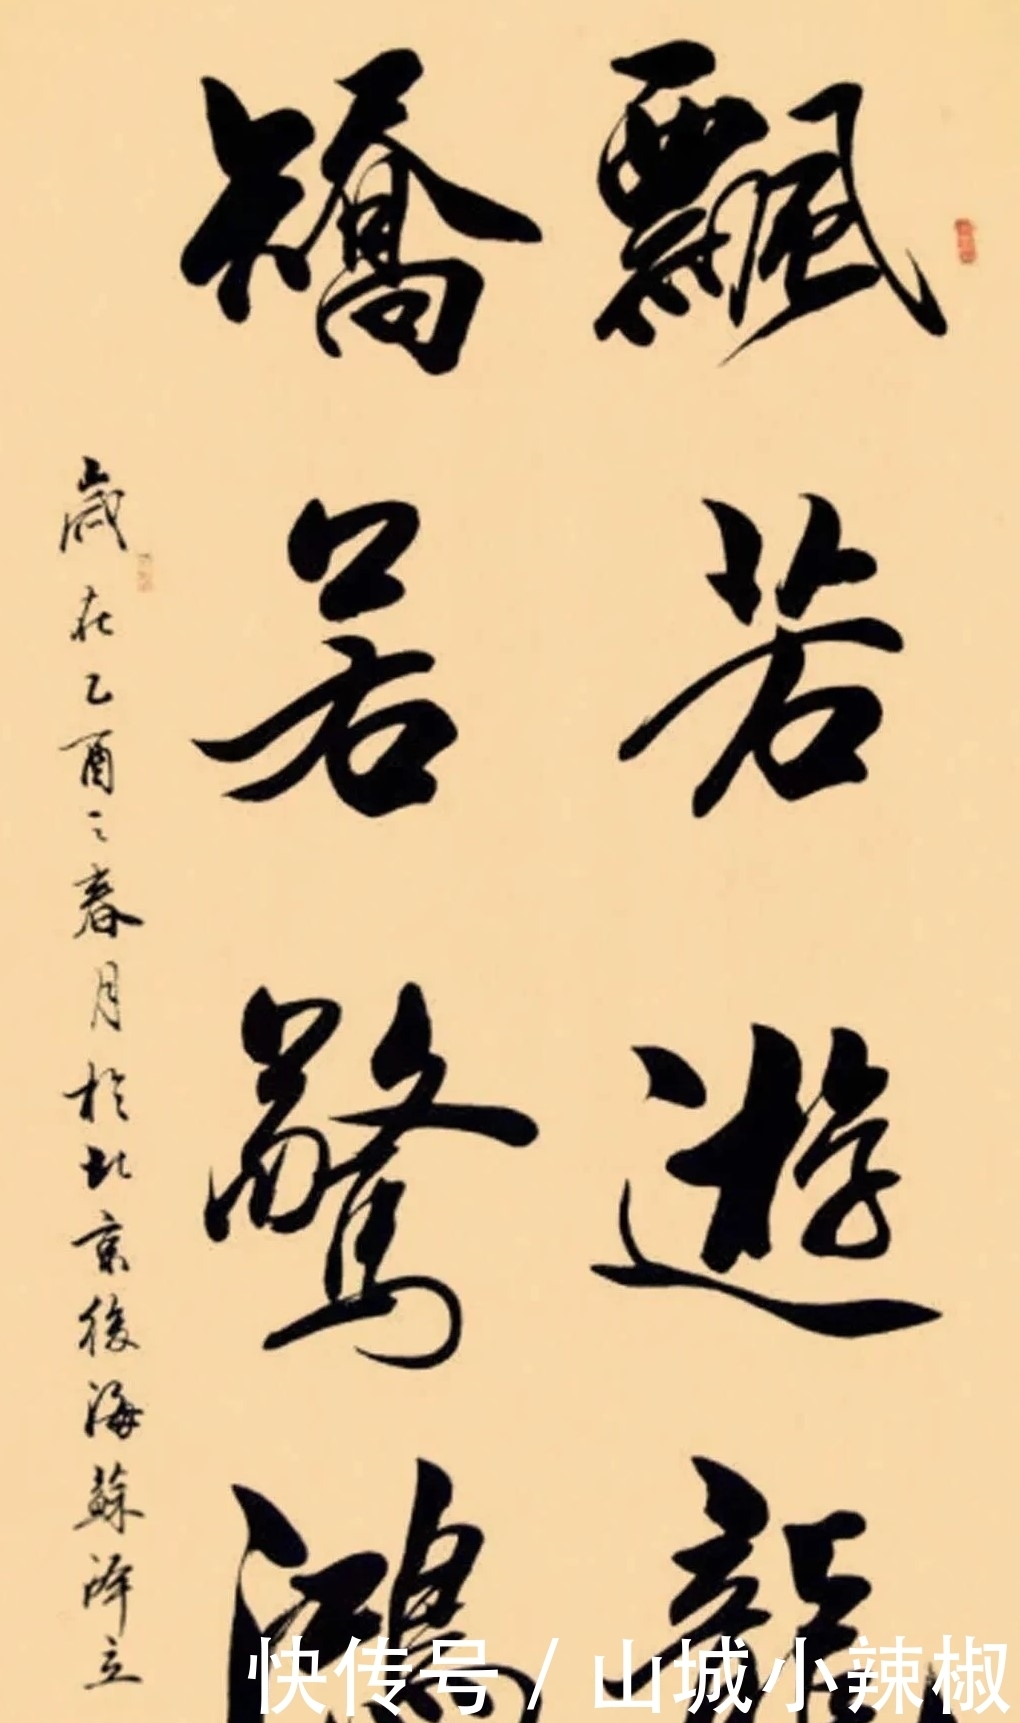 飄若遊龍
矯若驚鴻
歲在乙酉之春月於北京後海蘇澤立
快传号 / 山城小辣椒